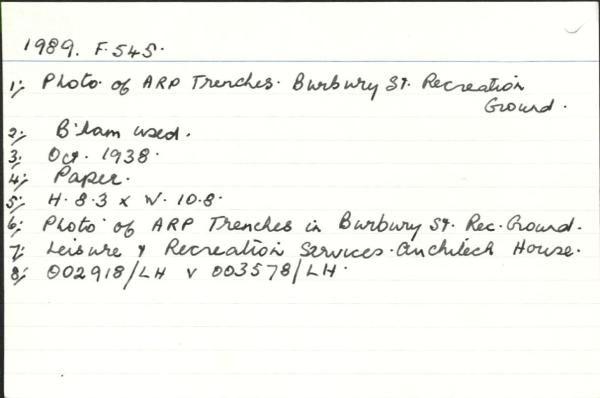 1989. F.545.
1; Photo of ARP Trenches. Burbury St. Recreation
Ground.
2; B'ham used.
3; Oct. 1938.
4; Paper.
5; H. 8.3 x W. 10.8.
6; Photo of ARP Trenches in Burbury St. Rec. Ground.
7; Leisure & Recreation Services. Auchitech House.
8; 002918/LH v 003578/LH.